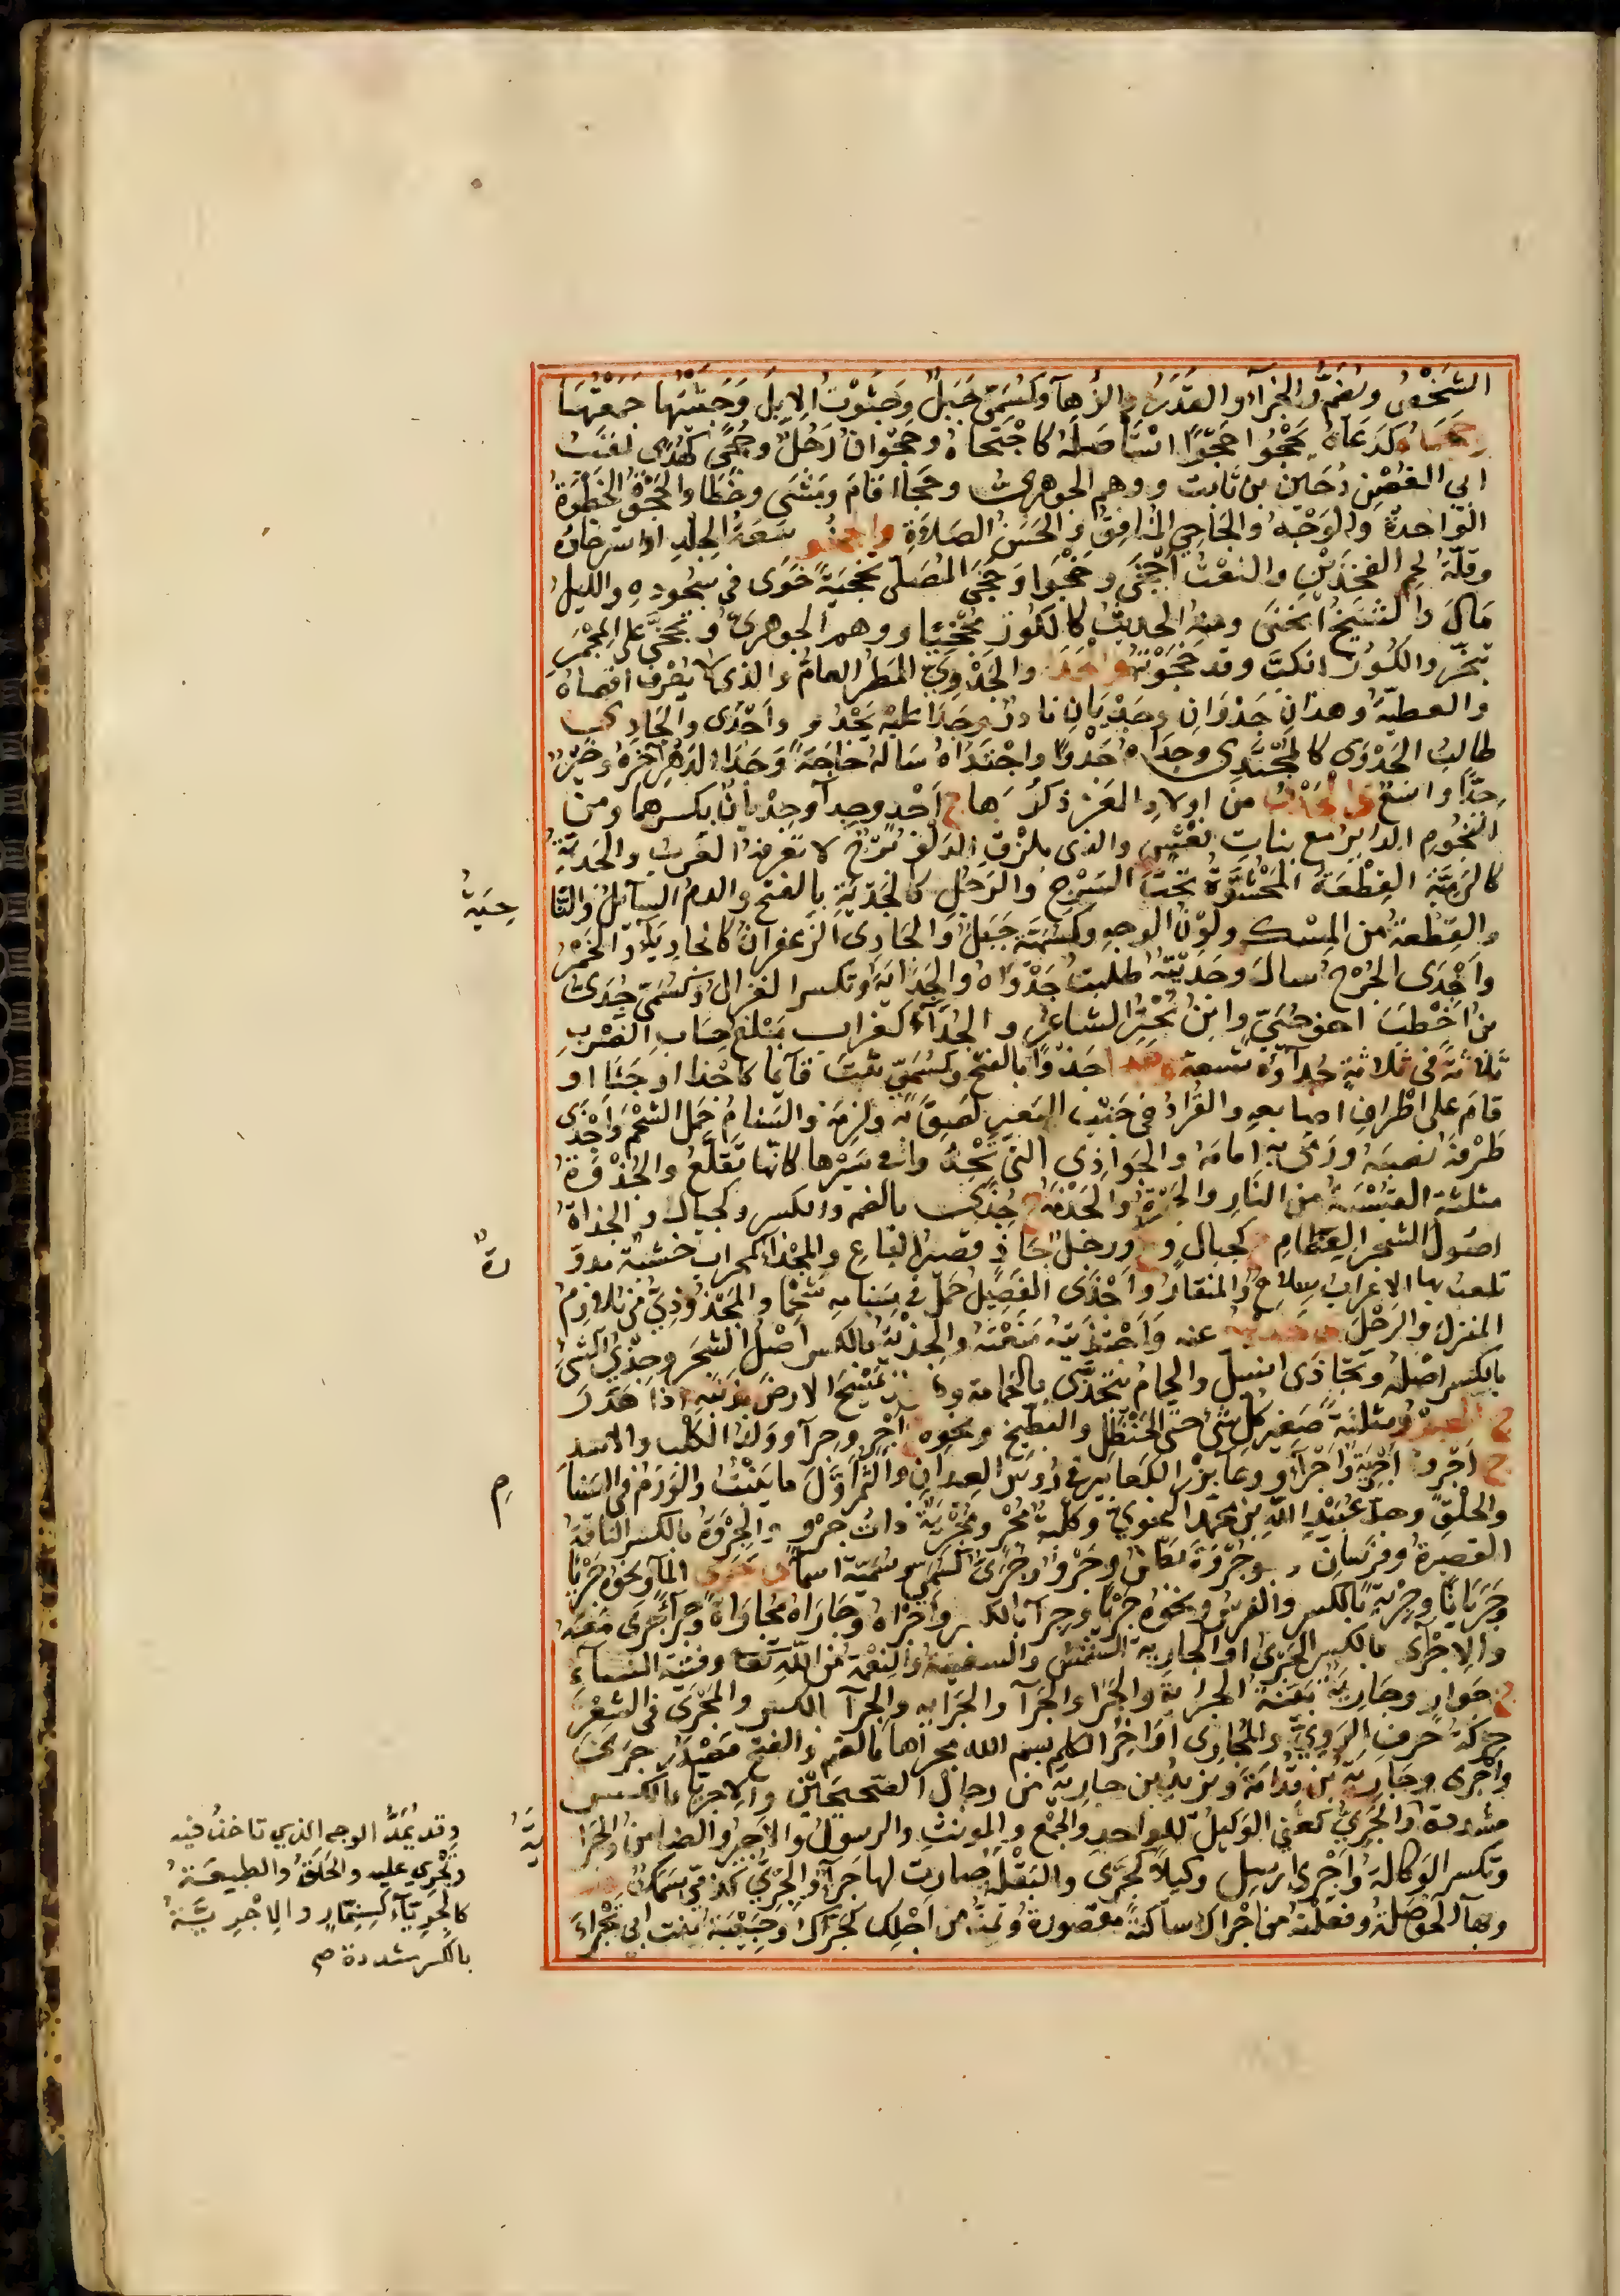 الشَّخْصُ ويُضَمُّ والجَزَآءُ والقَدَرُ والزُّهَآءُ وكسُمَيٍّ جَبَلٌ وجَثَوْتُ الابِلَ وجَثَيْتُهَا جَمَعْتُهَا
جحَاهُ كَدَعَاهُ جَحْوًا اسْتَأصَلَهُ كاجْتَحَاهُ وجَحْوَانُ رَجُلٌ وجُحَى كهُدًى لَقَبُ
ابي الغُصْنِ دُجَيْنِ بن ثَابت ووهم الجوهرىّ وجَحَا اقَامَ ومَشَى وخَطَا والجَحْوَةُ الخَطْوَةُ
الوَاحدةُ والوَجْهُ والجَاحِي المُثَاقِفُ والحَسَنُ الصَلاةِ والجَخْوُ سَعَةُ الجِلْدِ او اسْترخاؤُهُ
وقلّةُ لحمِ الفخذَيْنِ والنعْتُ اجْخَى وجَخْوَا وجَخَّى المُصَلّى تَجْخيَةً خَوَّى فى سجُودِهِ والليلُ
مَالَ والشَيْخُ انحَنَى ومنه الحديثُ كالكُوزِ مُجَخِّيًا ووهم الجوهرىّ وتَجَخَّى على المِجْمَرِ
تبَخَّرَ والكُوزُ انكَبَّ وقد جَخَوْتُهُ والجَدَا والجَدْوَى المَطَرُ العَامُّ والذى لا يُعْرَفُ اقصَاهُ
والعطيّةُ وهذانِ جَدْوَانِ وجَدْيَانِ نادرٌ وجَدَا عليْهِ يَجْدُو واَجْدَى والجَادِي
طالبُ الجَدْوَى كالمُجْتَدِى وجَدَاهُ جَدْوًا واجْتَدَاهُ سَالهُ حَاجَةً وجَدَا الدَّهْرِ آخِرُهُ وخَيْرٌ
جَدًا واسعٌ ى الجَدْىُ من اولادِ المَعْزِ ذكَرُهَا ج اَجْدٍ وجِدآءٌ وجِدْيَانٌ بكسرهما ومن
النُجُومِ الدائِرُ مع بناتِ نَعْشٍ والذى يلزقُ الدَلْوَ بُرْجٌ لا تعرفهُ العَرَبُ والجَدِيَّةُ
كالرَمِيَّةِ القِطْعَةُ المَحْشُوَّةُ تحْتَ السَرْجِ والرَحْلِ كالجَدْيَةِ بالفتح والدمُ السآئلُ والنّا
حِيَةُ
والقِطْعةُ من المِسْك ولوْنُ الوجهِ وكسُمَيَّةَ جَبَلٌ والجَادِىّ الزعفرانُ كالجادِيَآءِ والخَمْرُ
واَجْدَى الجُرْحُ سالَ وجَدَيْتُهُ طلبتُ جَدْوَاهُ والجَدَايَةُ وتكسر الغزالُ وكسُمَىّ جُدَىُّ
بنُ اخْطَبَ اخو حُيَىّ وابنُ تُجيبَ الشاعرُ والجُدَآءُ كغُراب مَبْلَغُ حِسَابِ الضَرْبِ
ثلاثةٌ فى ثلاثةٍ جُدآؤُهُ تسعة جذا جَذْوًا بالفتح وكسُمُوٍّ ثَبَتَ قآئمًا كاجْذَا او جَثَا او
قامَ على اطْرافِ اصابعهِ والقُرادُ فى جَنْبِ البَعيرِ لَصِقَ به ولزمَهُ والسَنامُ حَمَلَ الشحْمَ واَجْذَى
طَرْفَهُ نَصَبَهُ ورَمَى به امامَهُ والجَوَاذِى التى تَجْذُو فى سَيْرِها كانَّها تَقَلَّعُ والجُذْوَةُ
مثلثةً القَبْسَةُ من النَارِ والجَمْرَةُ والجِذْمَةُ ج جُذًى بالضم والكسر وكجبال والجَذَاةُ
اصُولُ الشجرِ العِظَامِ ج كجبالٍ ورجُلٌ جَاذٍ قصيرُ البَاعِ والمِجْذَآءُ كمِحرابٍ خَشَبةٌ مدوّ
رَةٌ
تلعبُ بها الاعرابُ سِلاحٌ والمنقارُ واَجْذَى الفَصيلُ حملَ فى سَنامِهِ شَحْمًا والمُجْذَوْذِىُ من يُلازِمُ
المنزلَ والرَّحْلَ ى جَذَيْتُهُ عنه واَجْتَذَيْتُهُ مَنَعْتُهُ والجِذْيَةُ بالكسر اصْلُ الشجَرِ وجِذْىُ الشَىْءِ
بالكسر اصْلُهُ وتجَاذَى انسَلَّ والحمامُ يتجَذَّى بالحمامةِ وهو ان يَمْسَحَ الارضَ بذَنَبِهِ اذا هَدَرَ
و الجروُ مثلثةً صَغيرُ كلِّ شىءٍ حتى الحَنْظَلِ والبطّيخِ ونحوه ج اَجْرٍ وجِرآءٌ وولَدُ الكلْبِ والاسدِ
ج اَجْرٍ وَاَجْرِيَةٌ واَجْرَآءٌ ووعآءُ بِزْرِ الكعَابيرِ فى رُؤسِ العيدانِ والثمَرُ اوّلَ ما يَنْبُتُ والوَرَمُ فى السَنا
مِ
والحَلْقِ وجدّ عُبَيْدِ اللّهِ بنِ محمّد النحوىّ وكلبةٌ مُجْرٍ ومُجْرِيَةٌ ذاتُ جِرْوٍ والجِرْوَةُ بالكسر الناقةُ
القصيرةُ وفرَسانِ وبنو جِرْوَةَ بَطْنٌ وجِرْوٌ وجُرَىٌّ كسُمَىّ وسُمَيّةَ اسمآءٌ ى جَرَى المآءُ ونحوُهُ جَرْيًا
وجَرَيَانًا وجِرْيَةً بالكسر والفرسُ ونحوُهُ جَرْيًا وجِرآءً بالكسر واَجْرَاهُ وجَارَاهُ مُجَارَاةً وجِرآءً جَرَى مَعَهُ
والاِجْرِىُّ بالكسر الجَرْىُ والجاريةُ الشمْسُ والسفينةُ والنِعْمَةُ من اللّه تعا وفتيّةُ النسآءِ
ج جَوَارٍ وجَارِيَةٌ بَيِّنَةُ الجَرايَةِ والجَرَا والجَرآءِ والجَرَائِيَةِ والجِرآءِ بالكسر والمَجْرَى فى الشِعْرِ
حركَةُ حَرفِ الرَوِىّ والمَجَارِى اوَاخِرُ الكلمِ بسم الله مجراها بالضم والفتح مَصْدَرُ جَرَى
واَجْرَى وجَارِيَةُ بنُ قدامَةَ ويزيدُ بن جاريةَ من رجال الصّحيحَيْنِ والاِجْرِيَّا بالكسر
مشددةً والجَرِىُّ كغَنِىٍّ الوَكيلُ للواحدِ والجَمْعِ والمونثِ والرسولُ والاَجيرُ والضامِنُ والجَرَا
يَةُ
وتكسر الوَكالةُ واَجْرَى ارسل وكيلًا كجَرَّى والبَقْلَةُ صارت لها جِرآءٌ والجِرِّىُّ كذِمِّىٍّ سَمَكٌ
وبهآءٍ الحَوْصَلةُ وفعلتُه من اجْرَاك ساكنةً مقصورةً وتمدُّ من اجْلِك كجَرَّاك وحَبيْبَةُ بنت ابى تجْرَاةَ
وقد يُمَدُّ الوجه الذي تاخذ فيه
وتَجْري عليه والخَلَقُ والطبيعةُ
كالجِرِيَّآءِ كسِنِمّارٍ والاِجْرِيَّةُ
بالكسر مشددة صح